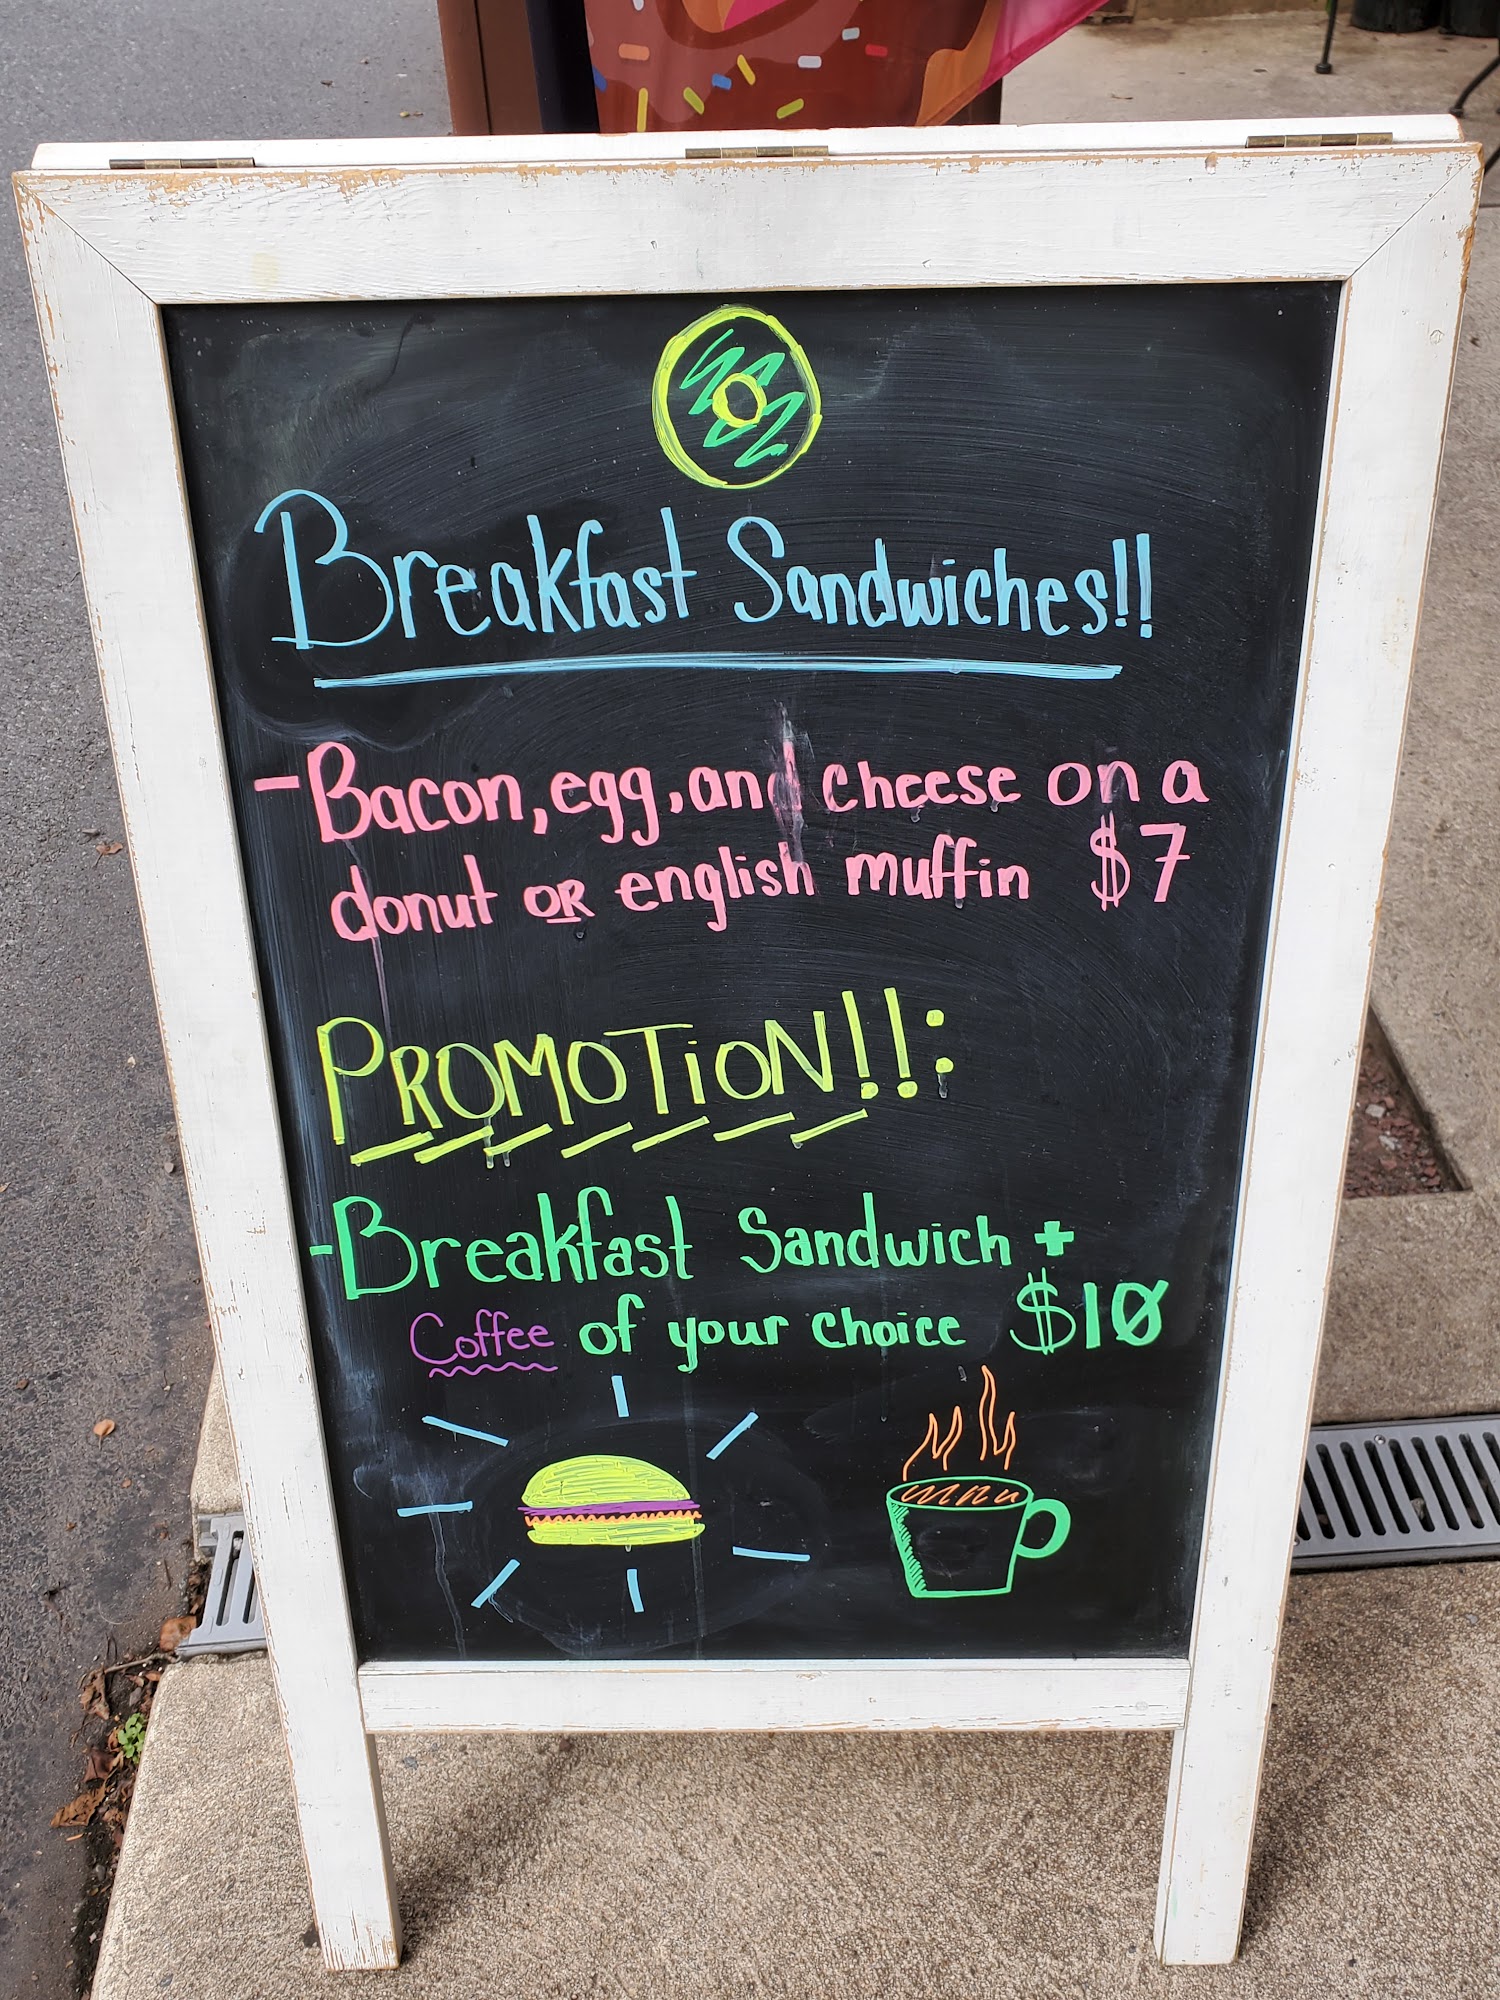 Breakfast Sandwiches!!
- Bacon, egg, and cheese on a
donut OR english muffin $7
PROMOTiON!!:
- Breakfast Sandwich +
Coffee of your choice $10